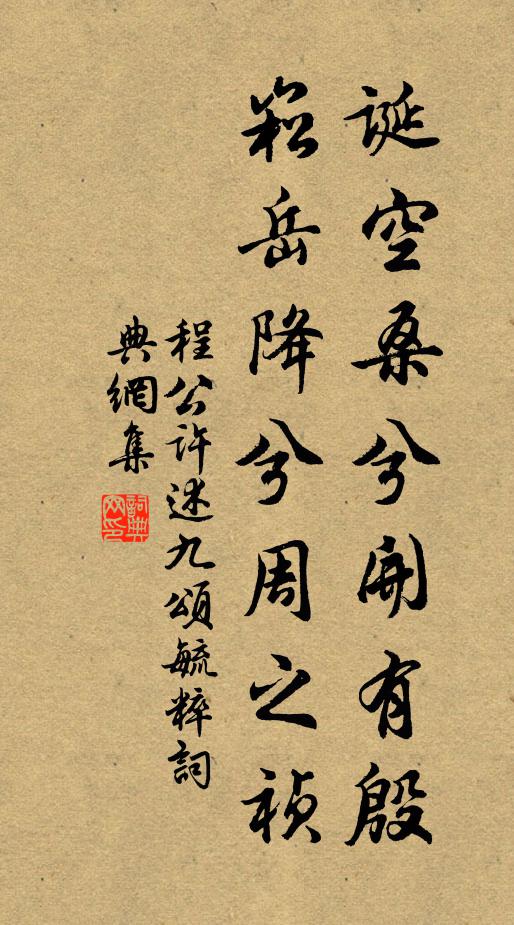 誕空桑兮開有殷
崧岳降兮周之禎
程公許述九頌毓粹詞
典網集
詞典
网印